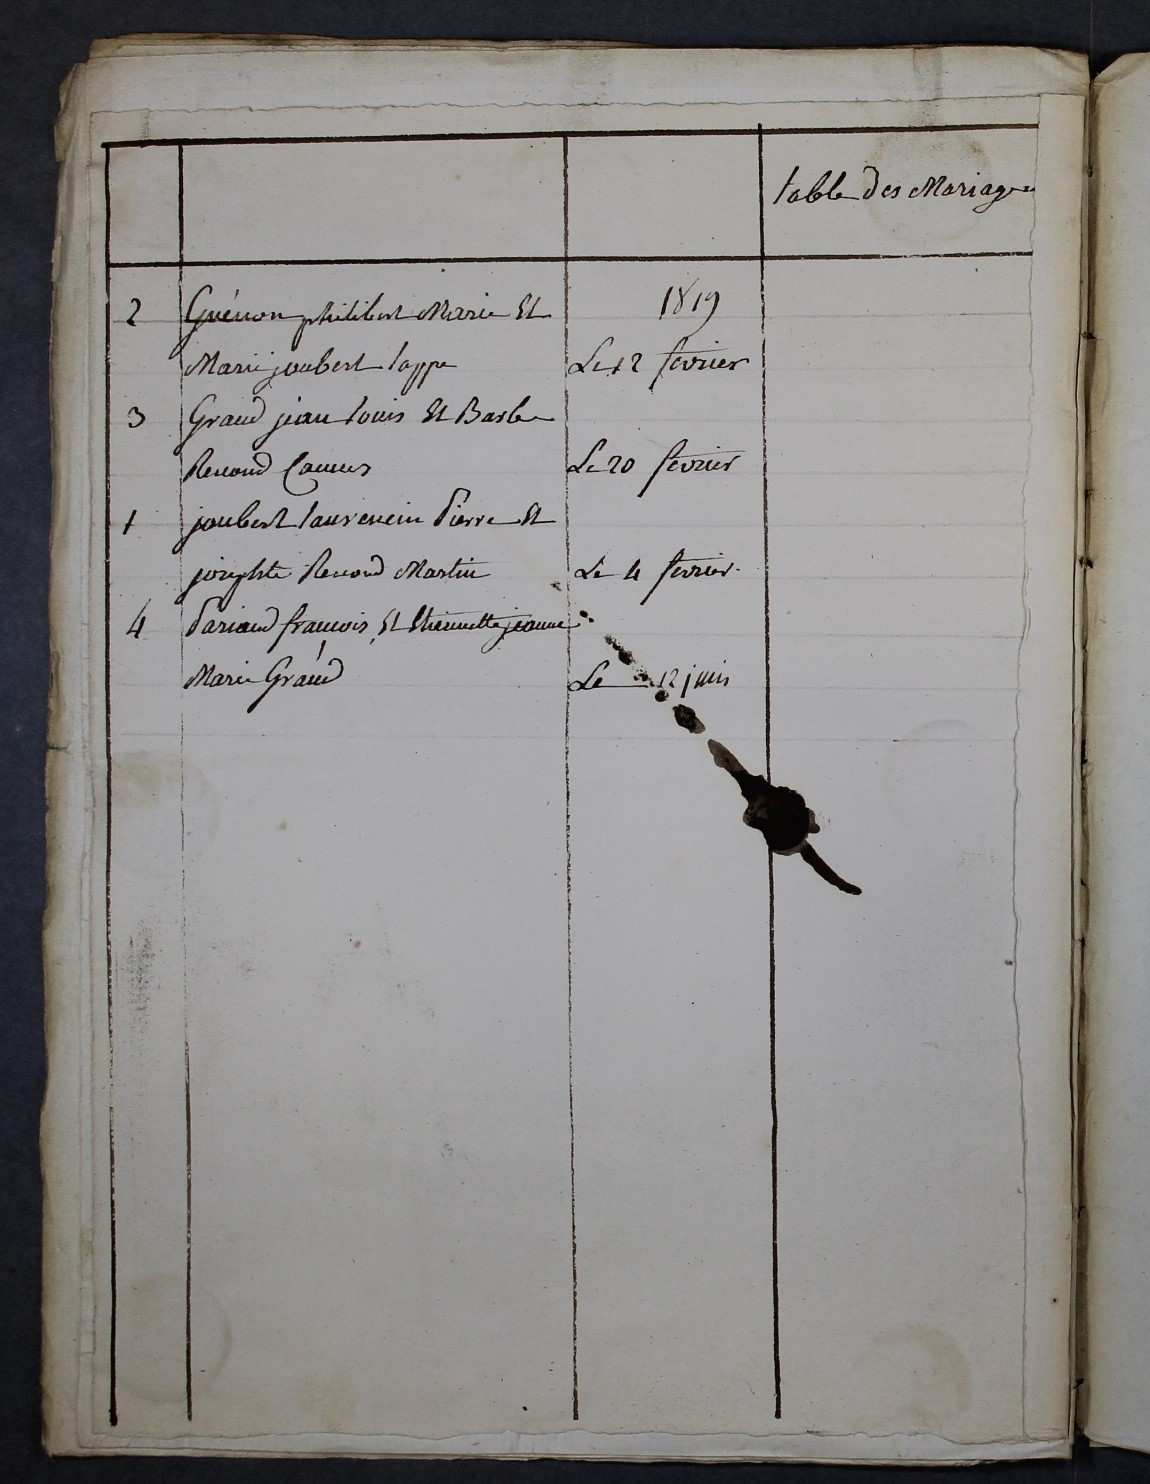 table des Mariages
1819
2 Guénon philibert Marie Et
Marie joubert lappe Le 12 fevrier
3 Graud jean louis Et Barbe
Renoud Camus Le 20 fevrier
1 joubert laurencin Pierre Et
josephte Renoud Martin Le 4 fevrier
4 Pariaud francois Et Etiennette jeanne
Marie Graud Le 12 juin